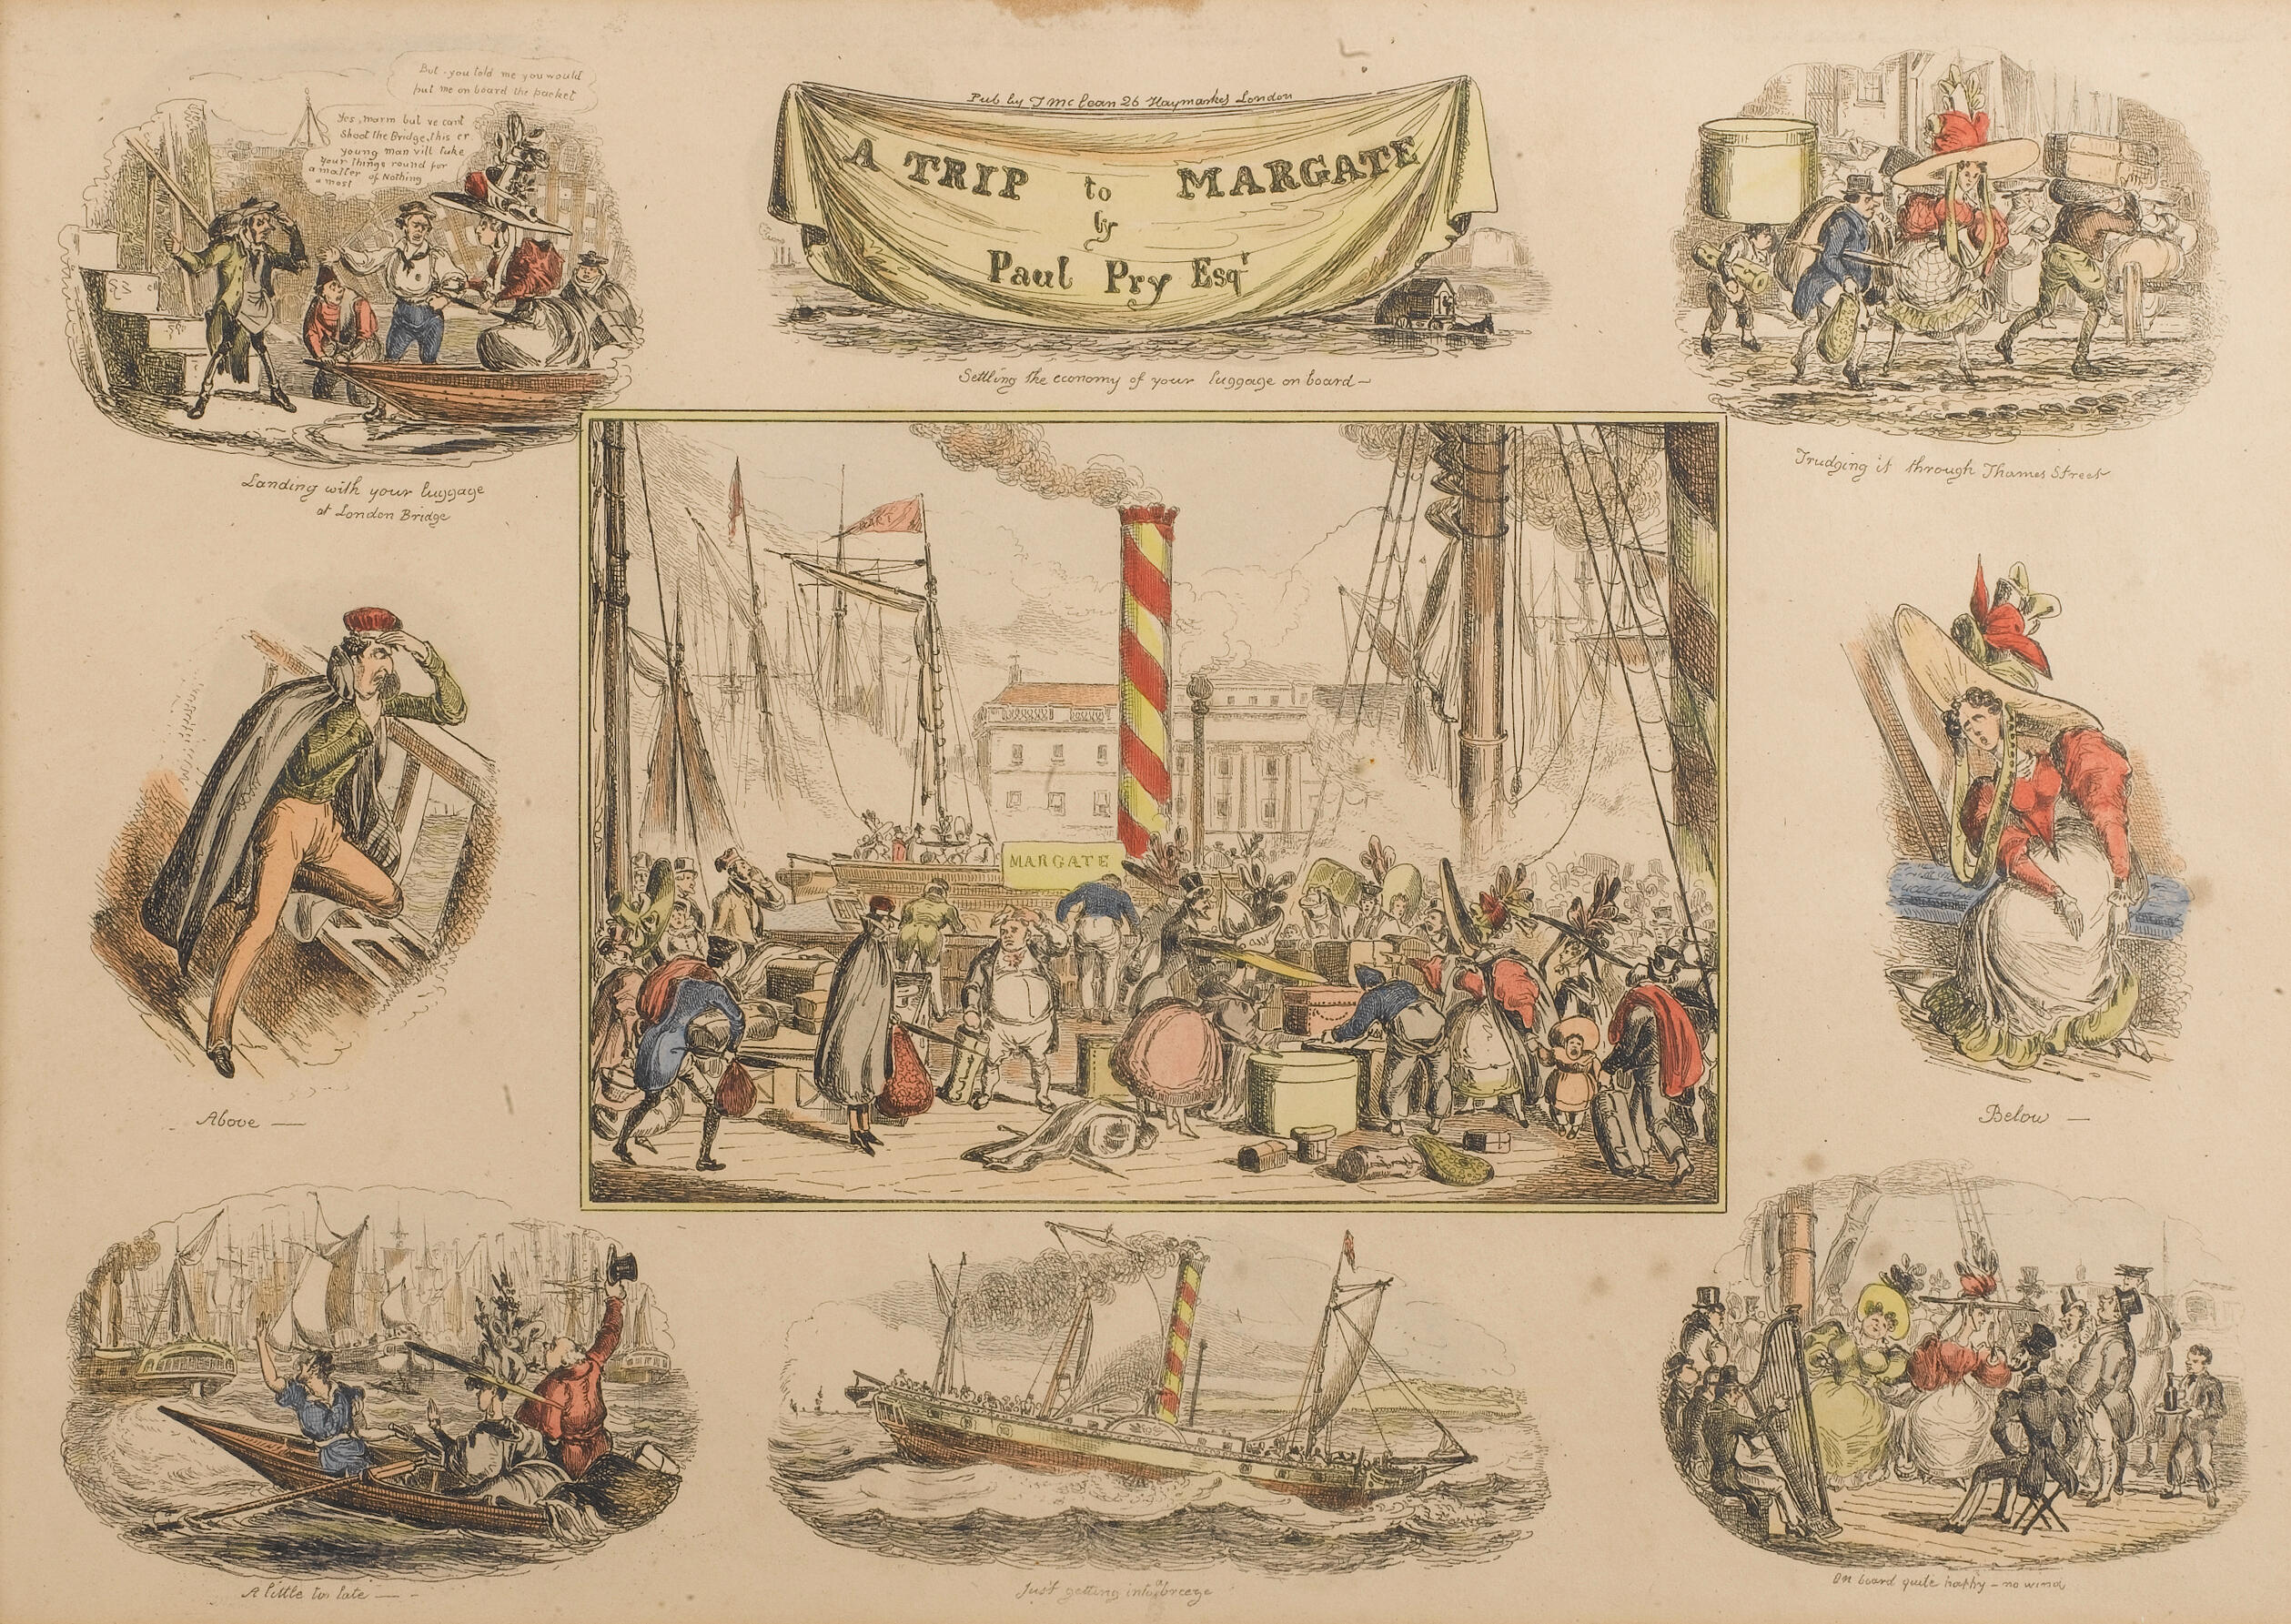 But you told me you would
put me on board the packet
Yes, marm but ve cant
Shoot the Bridge, this er
young man vill take
your things round for
a matter of Nothing
a most
Landing with your luggage
at London Bridge
Pub by T McLean 26 Haymarket London
A TRIP to MARGATE
by
Paul Pry Esqr
Settling the economy of your luggage on board—
Trudging it through Thames Street
MARGATE
Above —
Below —
A little too late — -
Just getting into a breeze
On board quite happy - no wind